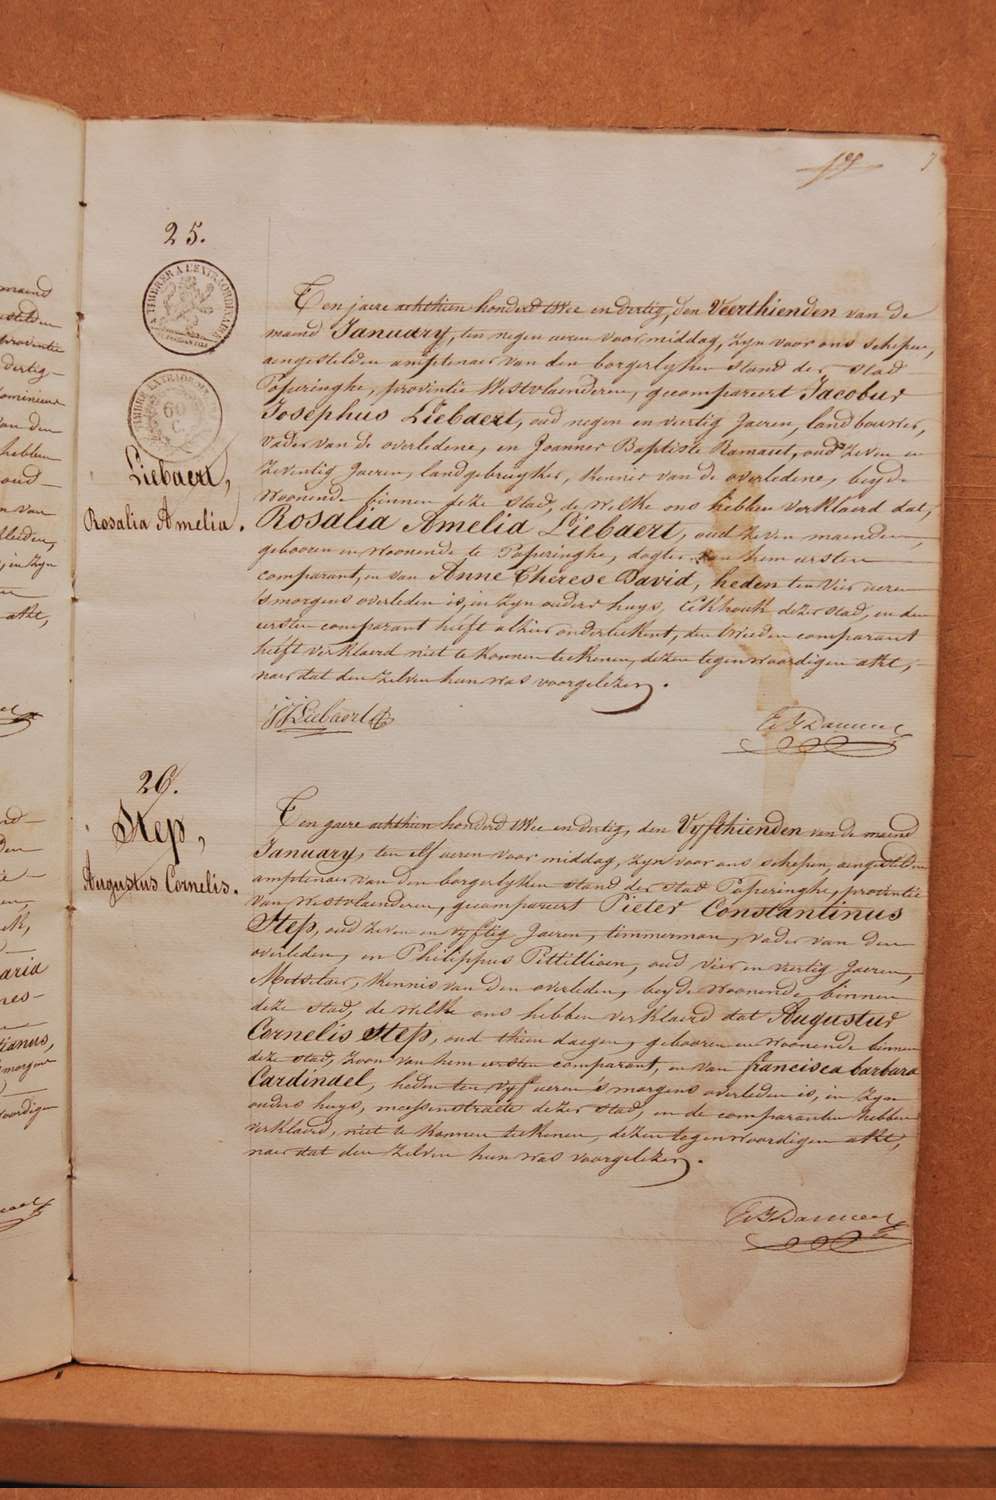 7
25.
TIMBRER A L'EXTRAORDINAIRE
TIMBRE EXTRAORD.
60
C
Liebaert,
Rosalia Amelia.
Ten jaere achthien honderd twee en dertig, den Veerthienden van de
maend January, ten negen ueren voor middag, zyn voor ons schepen,
aengestelden amptenaer van den borgerlyken stand der stad
Poperinghe, provintie Westvlaenderen, gecompareert Jacobus
Josephus Liebaert, oud negen en veertig Jaeren, landbouwer,
vader van de overledene, en Joannes Baptiste Ramaut, oud zeven en
zeventig Jaeren, landgebruyker, kennis van de overledene, beyde
woonende binnen deze stad, de welke ons hebben verklaerd dat,
Rosalia Amelia Liebaert, oud zeven maenden,
gebooren en woonende te Poperinghe, dogter van hem eersten
comparant, en van Anne Therese David, heden ten vier ueren
'smorgens overleden is, in zyn ouders huys, Eekhoek dezer stad, en den
eersten comparant heeft alhier onderteekent, den tweeden comparant
heeft verklaerd niet te konnen teekenen, dezen tegenwoordigen akt,
naer dat den zelven hun was voorgelezen.
JJ Liebaert
26.
Step,
Augustus Cornelis.
Ten jaere achthien honderd twee en dertig, den Vyfthienden van de maend
January, ten elf ueren voor middag, zyn voor ons schepen, aengestelden
amptenaer van den borgerlyken stand der stad Poperinghe, provintie
van Westvlaenderen, gecompareert Pieter Constantinus
Step, oud zeven en vyftig Jaeren, timmerman, vader van den
overleden, en Philippus Pittillioen, oud vier en veertig Jaeren,
Metselaer, kennis van den overleden, beyde woonende binnen
deze stad, de welke ons hebben verklaerd dat Augustus
Cornelis Step, oud thien daegen, gebooren en woonende binnen
deze stad, zoon van hem eersten comparant, en van francisca barbara
Cardindel, heden ten vyf ueren 's morgens overleden is, in zyn
ouders huys, meessenstraete dezer stad, en de comparanten hebben
verklaerd, niet te konnen teekenen, dezen tegenwoordigen akt,
naer dat den zelven hun was voorgelezen.